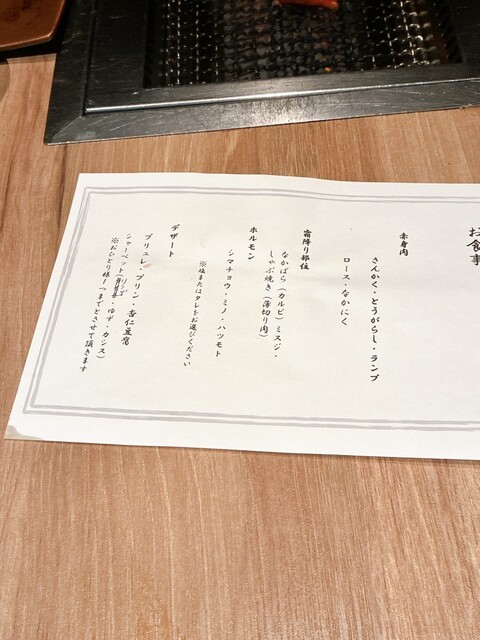 お食事
赤身肉
さんかく・とうがらし・ランプ
ロース・なかにく
霜降り部位
なかばら（カルビ）ミスジ・
しゃぶ焼き（薄切り肉）
ホルモン
シマチョウ・ミノ・ハツモト
※塩またはタレをお選びください
デザート
ブリュレ・プリン・杏仁豆腐
シャーベット（リンゴ ゆず・カシス）
※おひとり様一つまでとさせて頂きます